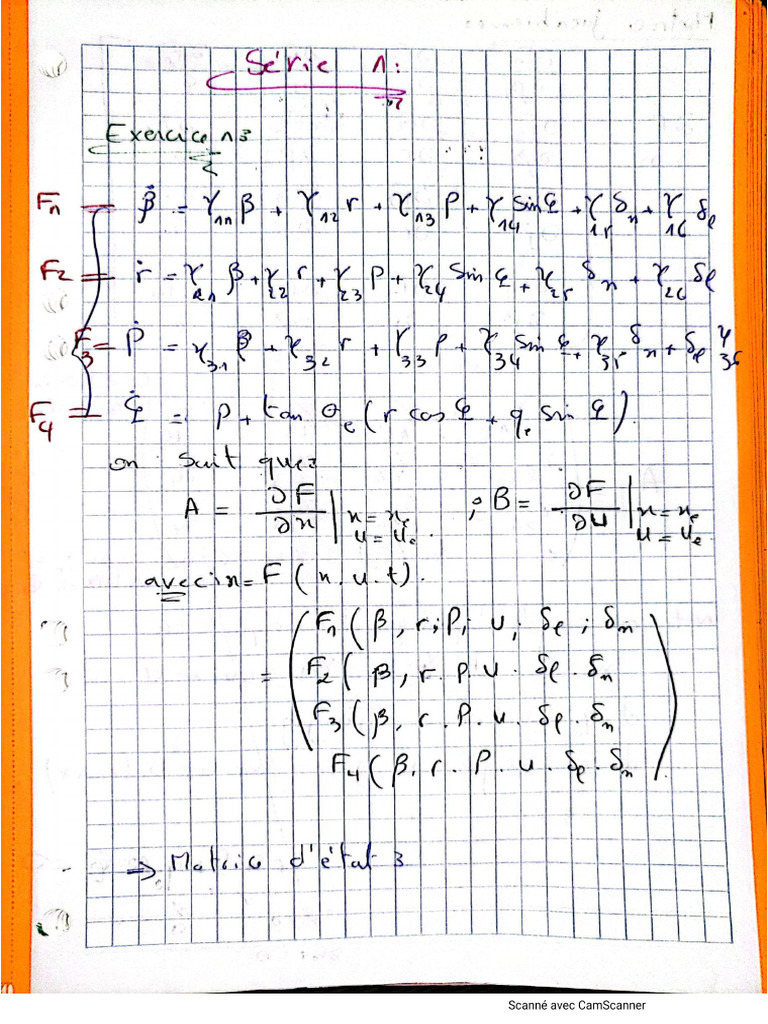 Série 1:
Exercice n3
F1 = β̇ = γ11 β + γ12 r + γ13 P + γ14 Sin φ + γ15 δn + γ16 δl
F2 = ṙ = γ21 β + γ22 r + γ23 P + γ24 Sin φ + γ25 δn + γ26 δl
F3 = Ṗ = γ31 β + γ32 r + γ33 P + γ34 Sin φ + γ35 δn + δl γ36
F4 = φ̇ = P + tan θe (r cos φ + qe Sin φ)
on sait que:
A = ∂F/∂x | x = xe u = ue ; B = ∂F/∂u | x = xe u = ue
avec: ẋ = F (x. u. t).
= ( F1 ( β, r; P; u; δl ; δn
F2 ( β, r. P. u. δl. δn
F3 ( β, r. P. u. δl. δn
F4 ( β, r. P. u. δl. δn )
⇒ Matrice d'état 3
Scanné avec CamScanner